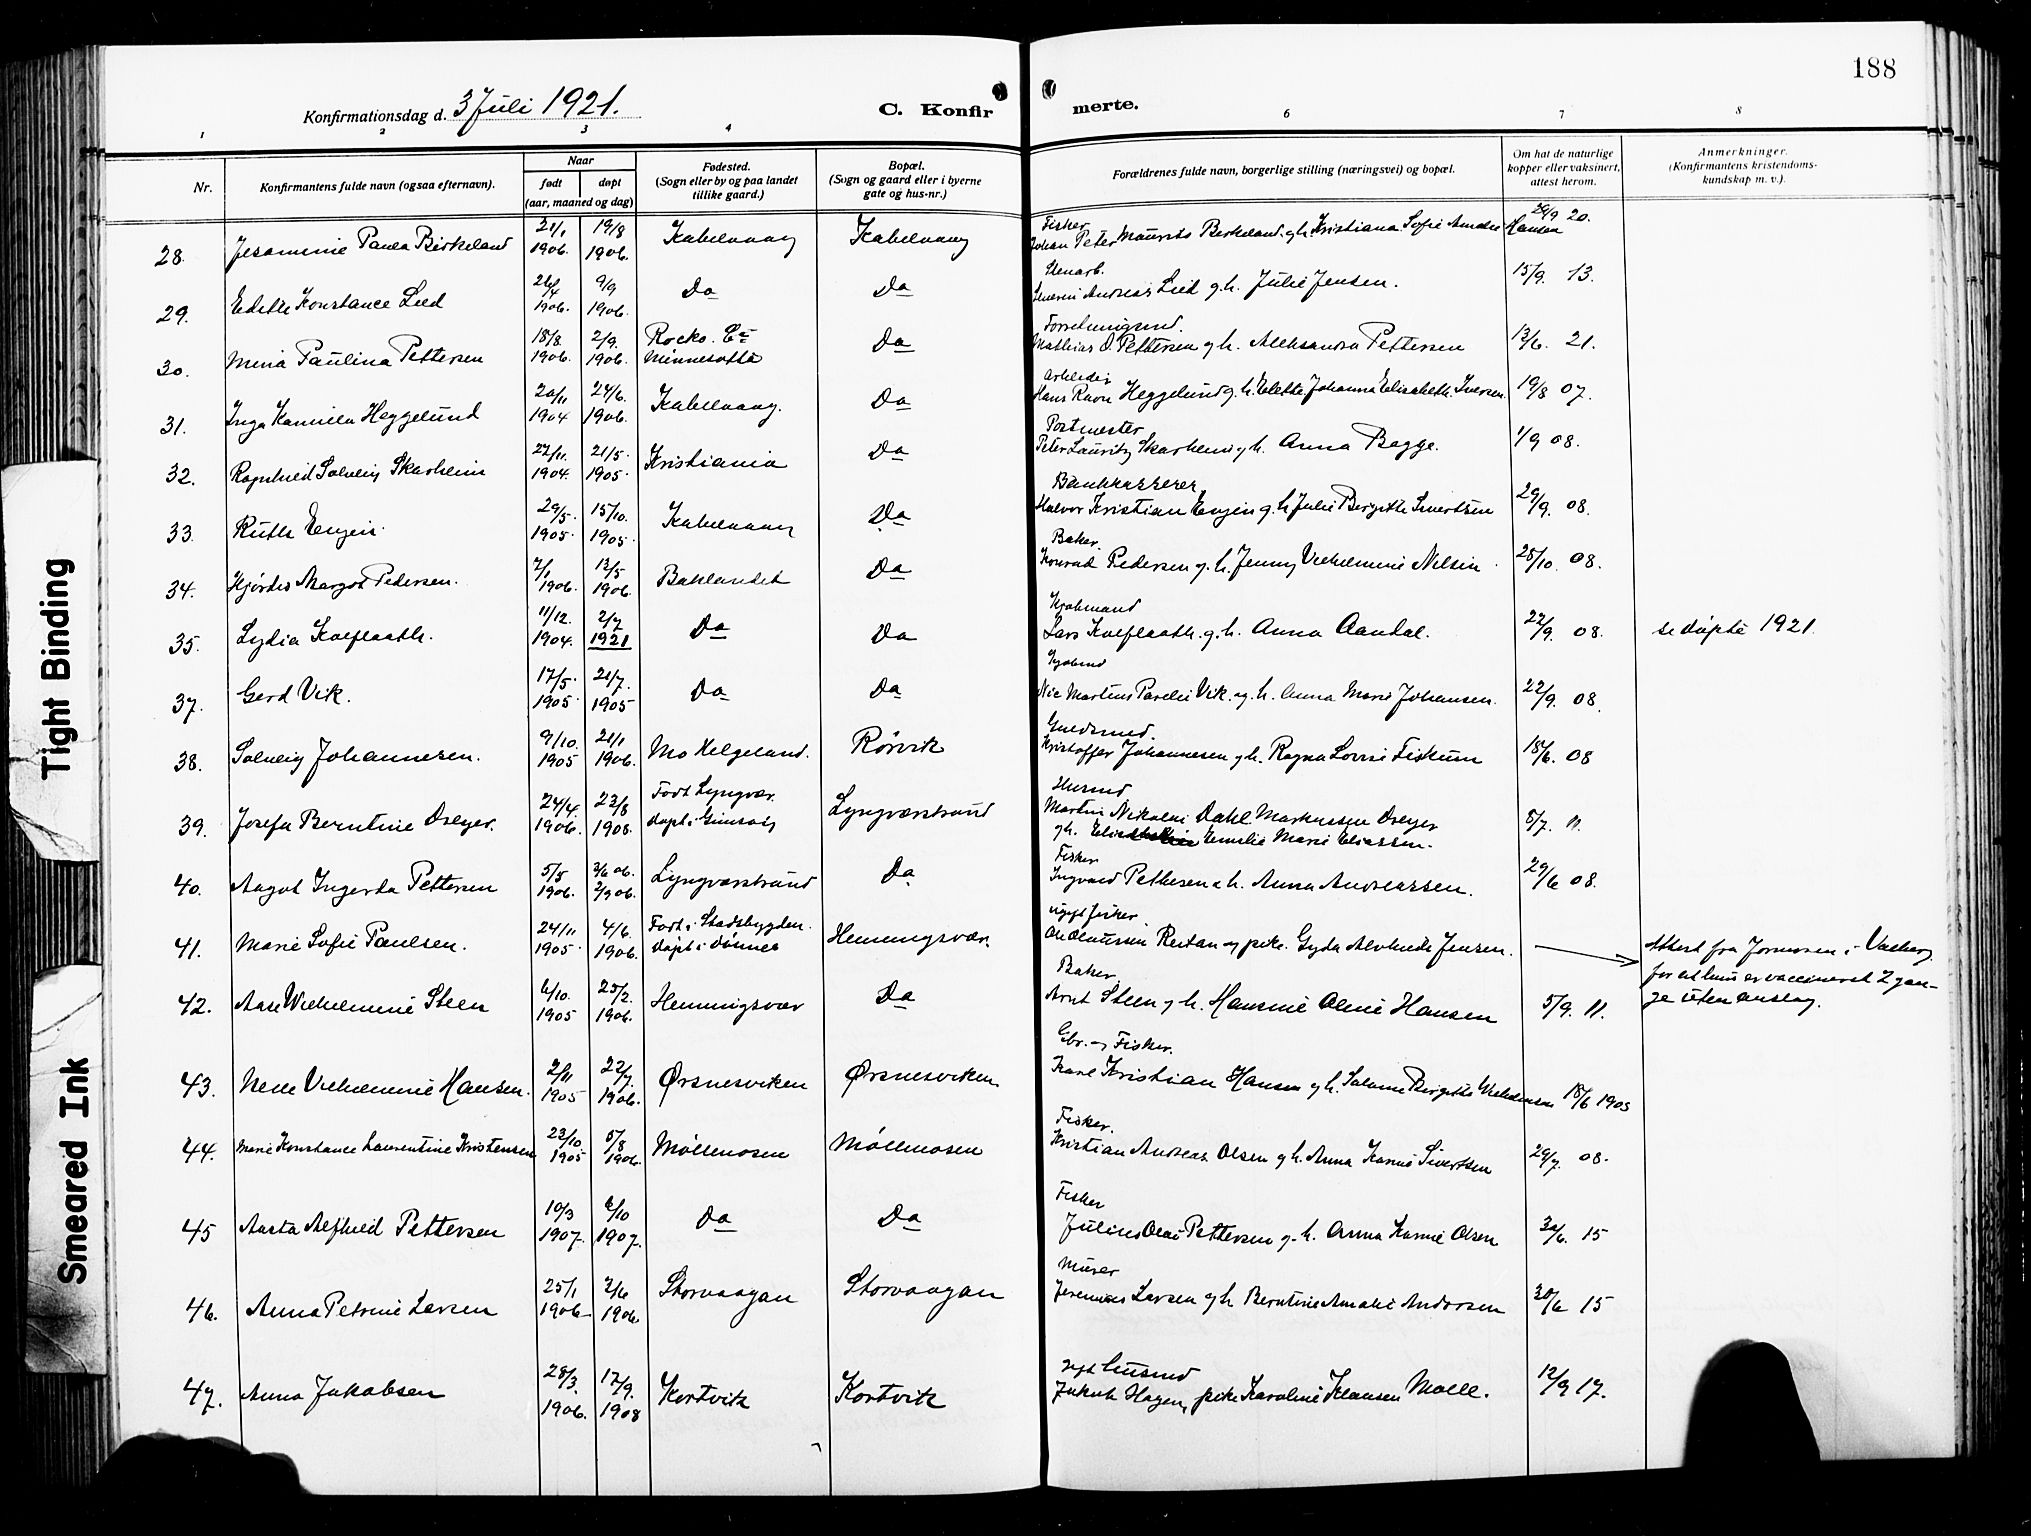 188
Konfirmationsdag d. 3 Juli 1921.
C. Konfir
merte.
1 2 3 4 6 7 8
Nr.
Konfirmantens fulde navn (ogsaa efternavn).
Naar
født døpt
(aar, maaned og dag)
Fødested.
(Sogn eller by og paa landet
tillike gaard.)
Bopæl.
(Sogn og gaard eller i byerne
gate og hus-nr.)
Forældrenes fulde navn, borgerlige stilling (næringsvei) og bopæl.
Om hat de naturlige
kopper eller vaksinert,
attest herom.
Anmerkninger.
(Konfirmantens kristendoms-
kundskap m. v.).
Fisker
28. Jesamine Paula Birkeland 21/1 1906. 19/8 1906. Kabelvaag Kabelvaag Johan Peter Maurits Birkeland. gh. Kristiana Sofie Amalie Hansen 20.
Stenarb.
29. Edith Konstance Lied 26/4 1906. 9/9 1906. Do Do Andreas Lied g.h. Julie Jensen. 15/9. 13.
30. Mina Paulina Pettersen 18/8 1906. 2/9. 1906. Minnesotta Do Mathias O. Pettersen gh. Aleksandra Pettersen 13/6. 21.
Arbeider
31. Inga Kamilla Heggelund 20/11 1904 24/6. 1906. Kabelvaag. Do Hans Ravn Heggelund g.h. Elette Johanna Elisabeth Iversen 19/8 07.
Postmester
32. Ragnhild Solveig Skarheim 22/11. 1904. 21/5. 1905. Kristiania Do Peter Lauritz Skarheim gh. Anna Bagge. 1/9 08.
Bankkasserer
33. Ruth Engen. 29/5. 1905. 15/10. 1905. Kabelvaag Do Halvor Kristian Engen g.h. Julie Bergitte Sivertsen 29/9. 08.
Baker.
34. Hjördis Margot Pedersen. 7/1 1906. 13/5 1906. Baklandet Do Konrad Pedersen g.h. Jenny Vilhelmine Nilsen 25/10. 08.
Kjøbmand
35. Lydia Kolflaath. 11/12. 1904. 2/7 1921 Do Do Lars Kolflaath. g.h. Anna Aandal. 22/9. 08. se døpte 1921.
37. Gerd Vik. 17/5. 1905. 21/7. 1905 Do Do Martin Parelius Vik. og h. Anna Marie Johansen. 22/9. 08.
Guldsmed.
38. Solveig Johannesen. 9/10. 1905 21/1 1906. Mo Helgeland. Rörvik Kristoffer Johannesen gh. Ragna Lovise Fiskum 18/6. 08
Husmd
39. Josefa Berntine Dreyer. 24/4. 1906. 23/8 1908. Födt Lyngvær. döpt i Gimsöy Lyngværstrand Martin Nikolai Dahl Markussen Dreyer 8/7. 11.
gh. Emilie Marie Eliassen.
Fisker
40. Aagot Ingerda Pettersen 5/5 1906. 3/6 06. 2/9 06. Lyngværstrand Do Ingvald Pettersen g.h. Anna Andreassen. 29/6 08.
ugift fisker
41. Marie Sofie Paulsen. 24/11 1905. 4/6. 1906. Födt i Stadsbygden. döpt i Dönnes Henningsvær. Reitan og pike. Gyda Alvhilde Jensen. Attest fra Jormoren i Valberg
for at hun er vaccineret 2 gan-
ge uten anslag.
Baker
42. Aase Vilhelmine Steen 6/10. 1905 25/2. 1906. Henningsvær Do Arnt Steen g h. Hansine Oline Hansen 5/9. 11.
Gbr. og Fisker.
43. Nelle Vilhelmine Hansen. 2/11 1905 22/7. 1906. Ørsnesviken Ørsnesviken Karl Kristian Hansen gh. Salome Bergitte Vilhelmsen 18/6 1908
Fisker.
44. Marie Konstance Laurentine Kristensen 23/10 1905 5/8 1906. Möllnosen Möllnosen Kristian Andreas Olsen gh. Anna Karine Sivertsen 29/7. 08.
Fisker
45 Aasta Alfhild Pettersen 10/3 1907. 6/10 1907. Do Do Julius Olai Pettersen g.h. Anna Karine Olsen 30/6. 15
Murer
46. Anna Petrine Larsen 25/1 1906. 3/6 1906. Storvaagan Storvaagan Larsen gh Berntine Amalie Andersen 30/6 15
47. Anna Jakobsen 28/3. 1906. 17/9. 1908 Kortvik Kortvik Jakob Hagen, pike Karoline Klausen Molle. 12/9 17.
Tight Binding
Smeared Ink